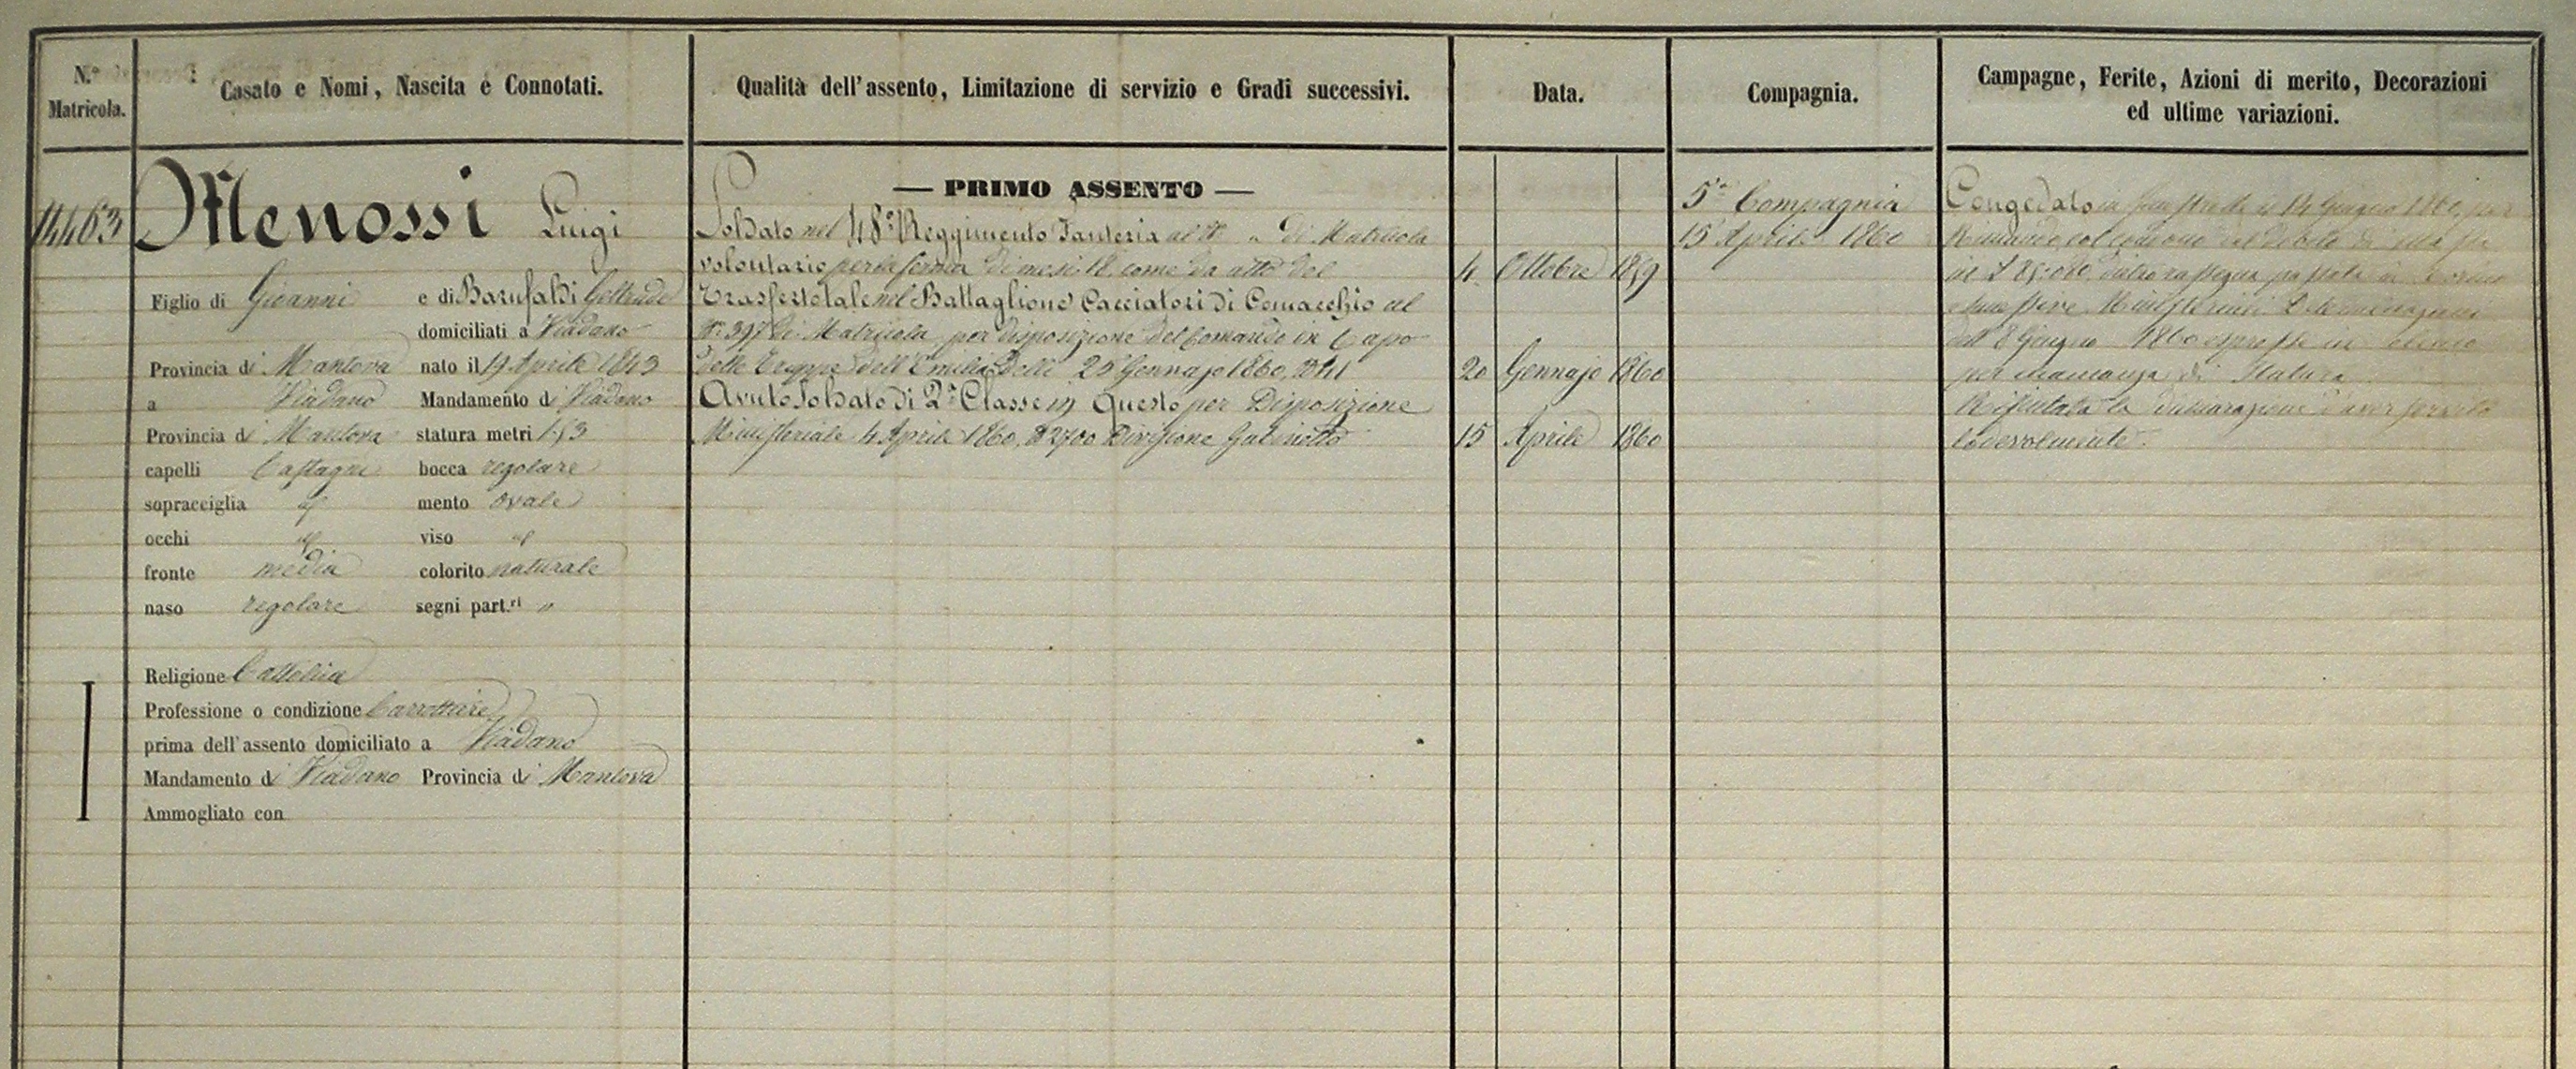 N.º Matricola.
Casato e Nomi, Nascita e Connotati.
Qualità dell'assento, Limitazione di servizio e Gradi successivi.
Data.
Compagnia.
Campagne, Ferite, Azioni di merito, Decorazioni
ed ultime variazioni.
14463
Menossi Luigi
Figlio di Gioanni e di Barufaldi Geltrude
domiciliati a Viadano
Provincia di Mantova nato il 19 Aprile 1843
a Viadano Mandamento di Viadano
Provincia di Mantova statura metri 1.53
capelli Castagni bocca regolare
sopracciglia id mento ovale
occhi id viso id
fronte media colorito naturale
naso regolare segni part.ri "
Religione Cattolica
Professione o condizione
prima dell'assento domiciliato a Viadano
Mandamento di Viadano Provincia di Mantova
Ammogliato con
— PRIMO ASSENTO —
Soldato nel 48º Reggimento Fanteria al Nº " di Matricola
volontario per la ferma di mesi 18 come da atto del
4 Ottobre 1859
Trasferto tale nel Battaglione Cacciatori di Comacchio al
Nº 397 di Matricola per disposizione del Comando in Capo
delle Truppe dell'Emilia Delli 20 Gennajo 1860,
20 Gennajo 1860
Avuto Soldato di 2ª Classe in Questo per Disposizione
Ministeriale 4 Aprile 1860, Nº 2700 Divisione Gabinetto
15 Aprile 1860
5ª Compagnia
15 Aprile 1860
Congedato in il 14 Giugno 1860, per
col condono del debito di
in £ passata in
Ministeriali Determinazioni
dell' 8 Giugno 1860 espresse in
per mancanza di Statura
Rifiutata la dichiarazione d'aver servito
lodevolmente.